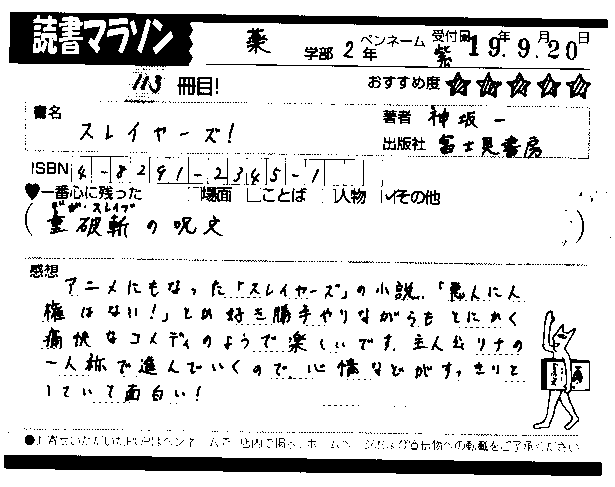 読書マラソン
薬 学部 2 年 ペンネーム 紫 受付 19年 9月 20日
113 冊目! おすすめ度 ☆☆☆☆☆
書名 スレイヤーズ!
著者 神坂一
出版社 富士見書房
ISBN 4-8291-2345-1
♥一番心に残った □場面 □ことば □人物 ☑その他
(竜破斬の呪文)
ドラグ・スレイブ
感想
アニメにもなった「スレイヤーズ」の小説.「悪人に人
権はない!」とか好き勝手やりながらもとにかく
痛快なコメディのようで楽しいです.主人公リナの
一人称で進んでいくので、心情などがすっきりと
していて面白い!